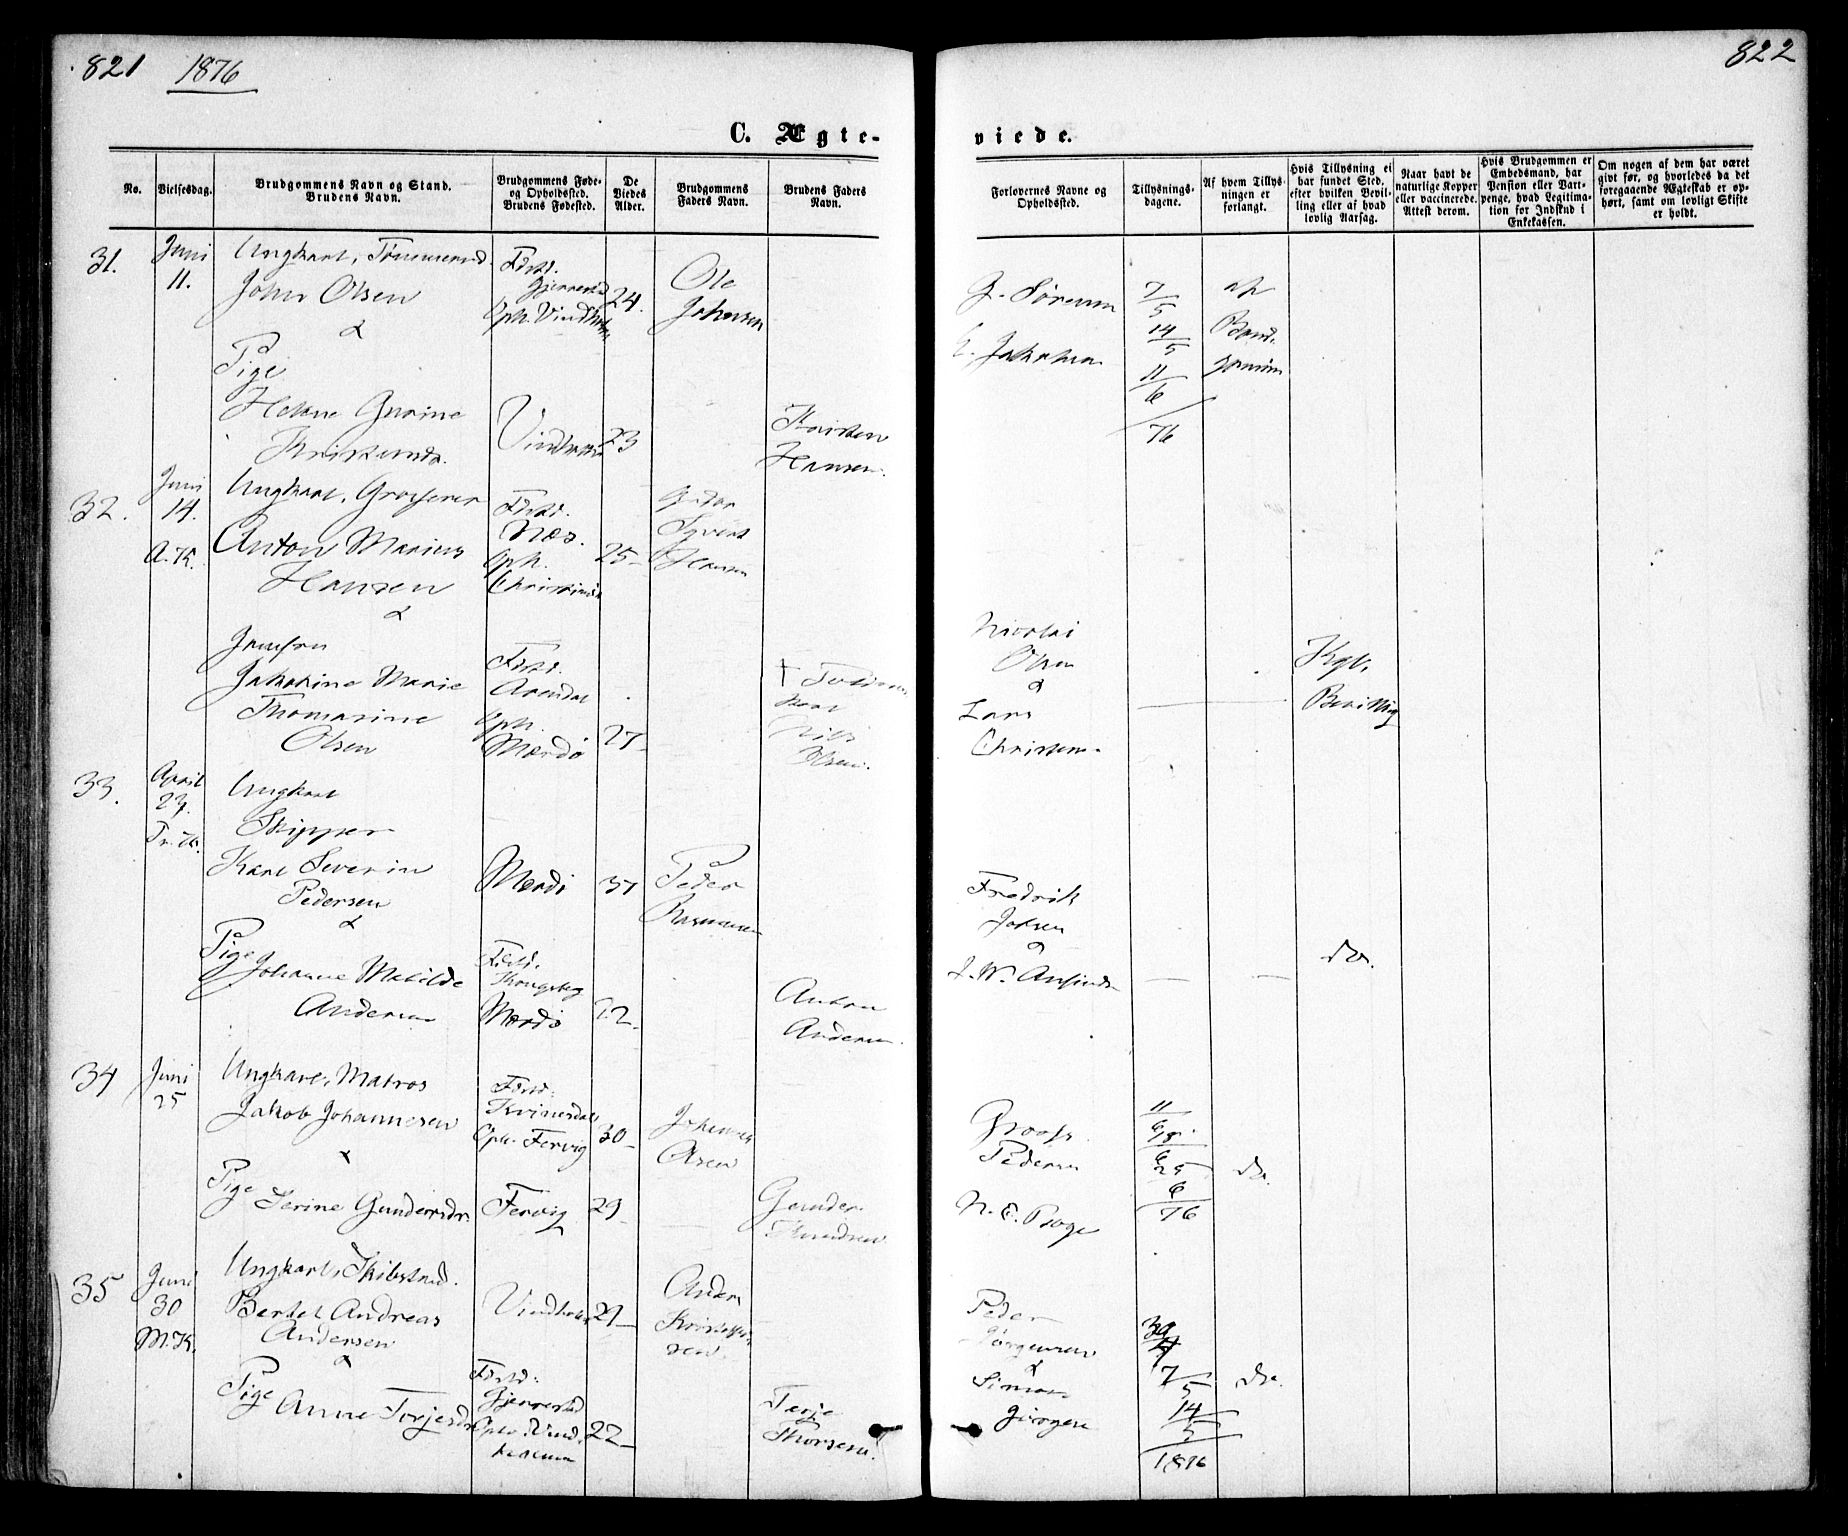 821 1876
822
C. Ægte-
viede.
No.
Vielsesdag.
Brudgommens Navn og Stand.
Brudens Navn.
Brudgommens Føde-
og Opholdssted.
Brudens Fødested.
De
Viedes
Alder.
Brudgommens
Faders Navn.
Brudens Faders
Navn.
Forlovernes Navne og
Opholdssted.
Tillysnings-
dagene.
Af hvem Tillys-
ningen er
forlangt.
Hvis Tillysning ei
har fundet Sted,
efter hvilken Bevil-
ling eller af hvad
lovlig Aarsag.
Naar havt de
naturlige Kopper
eller vaccinerede.
Attest derom.
Hvis Brudgommen er
Embedsmand, har
Pension eller Vart-
penge, hvad Legitima-
tion for Indskud i
Enkekassen.
Om nogen af dem har været
gift før, og hvorledes da det
foregaaende Ægteskab er op-
hørt, samt om lovligt Skifte
er holdt.
31.
Juni
11.
Ungkarl,
John Olsen
&
Pige
Helene Gurine
Fødst.
Oph. Vindholm
24.
Ole
Johnsen
23
Hansen.
G.
7/5
14/5
11/6
76
af
32.
Juni
14.
A.K.
Ungkarl, Grosserer
Anton Marius
Hansen
&
Jomfru
Marie
Thomasine
Olsen
Fødst.
Næs.
Oph.
Christiania
25-
Hansen
Fødst.
Arendal
Oph.
Mærdø
27-
†
Nils
Olsen.
Nicolai
Olsen
&
Lars
Christensen
Kgl.
Bevilling
33.
April
23.
Tr.K.
Ungkarl
Skipper
Karl Severin
Pedersen
&
Pige
Johanne Matilde
Andersen
Mærdø
37
Peder
Rasmussen
Fødst.
Kongsberg
Mærdø
Anton
Andersen.
Fredrik
Jahnsen
&
do.
34
Juni
25
Ungkarl, Matros
Jakob Johannesen
&
Pige
Serine Gundersdr.
Fødst:
Kvinesdal
Oph. Fervig
30-
Johannes
Olsen
Fervig
29-
Gunder
Knudsen
Pedersen
N. E.
11/6
18/6
25/6
76
do.
35
Juni
30
M.K.
Ungkarl, Skibstmd.
Bertel Andreas
Andersen
&
Pige
Anne Torjesdr
Vindholm
29-
Anders
Kristoffer-
sen.
Fødst:
Gjerrestad
Oph. Vind-
holmen
22-
Terje
Thorsen.
Peder
Jørgensen
&
Simon
Jørgen
30/4
7/5
14/5
1876
do.